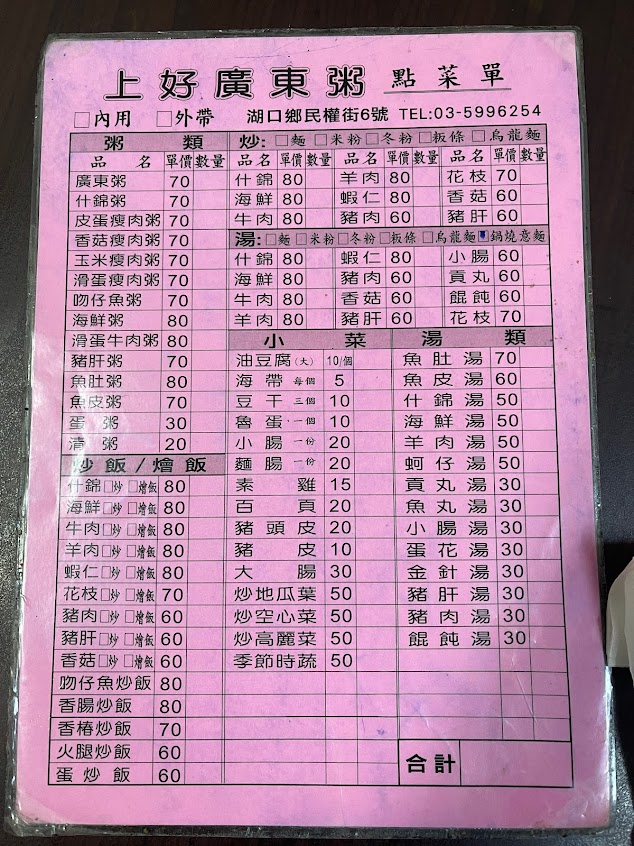 上好廣東粥 點菜單
□內用 □外帶 湖口鄉民權街6號 TEL:03-5996254
粥類
品名 單價 數量
廣東粥 70
什錦粥 70
皮蛋瘦肉粥 70
香菇瘦肉粥 70
玉米瘦肉粥 70
滑蛋瘦肉粥 70
吻仔魚粥 70
海鮮粥 80
滑蛋牛肉粥 80
豬肝粥 70
魚肚粥 80
魚皮粥 70
蛋粥 30
清粥 20
炒飯/燴飯
什錦□炒 □燴飯 80
海鮮□炒 □燴飯 80
牛肉□炒 □燴飯 80
羊肉□炒 □燴飯 80
蝦仁□炒 □燴飯 80
花枝□炒 □燴飯 70
豬肉□炒 □燴飯 60
豬肝□炒 □燴飯 60
香菇□炒 □燴飯 60
吻仔魚炒飯 80
香腸炒飯 80
香椿炒飯 70
火腿炒飯 60
蛋炒飯 60
炒:□麵 □米粉 □冬粉 □粄條 □烏龍麵
品名 單價 數量 品名 單價 數量 品名 單價 數量
什錦 80 羊肉 80 花枝 70
海鮮 80 蝦仁 80 香菇 60
牛肉 80 豬肉 60 豬肝 60
湯:□麵 □米粉 □冬粉 □粄條 □烏龍麵 □鍋燒意麵
什錦 80 蝦仁 80 小腸 60
海鮮 80 豬肉 60 貢丸 60
牛肉 80 香菇 60 餛飩 60
羊肉 80 豬肝 60 花枝 70
小菜
油豆腐(大) 10/個
海帶 每個 5
豆干 三個 10
魯蛋 一個 10
小腸 一份 20
麵腸 一份 20
素雞 15
百頁 20
豬頭皮 20
豬皮 10
大腸 30
炒地瓜葉 50
炒空心菜 50
炒高麗菜 50
季節時蔬 50
湯類
魚肚湯 70
魚皮湯 60
什錦湯 50
海鮮湯 50
羊肉湯 50
蚵仔湯 50
貢丸湯 30
魚丸湯 30
小腸湯 30
蛋花湯 30
金針湯 30
豬肝湯 30
豬肉湯 30
餛飩湯 30
合計